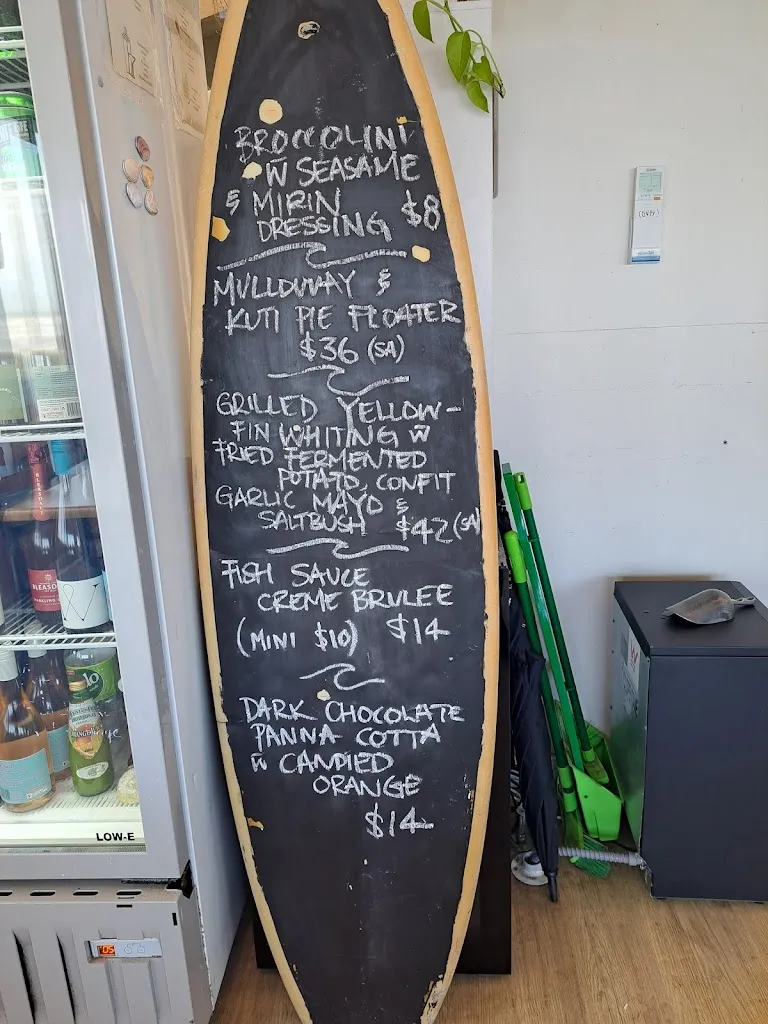 BROCCOLINI
W̄ SEASAME
& MIRIN $8
DRESSING
MULLOWAY &
KUTI PIE FLOATER
$36 (SA)
GRILLED YELLOW-
FIN WHITING W̄
FRIED FERMENTED
POTATO, CONFIT
GARLIC MAYO &
SALTBUSH $42 (SA)
FISH SAUCE
CREME BRULEE
(MINI $10) $14
DARK CHOCOLATE
PANNA COTTA
W̄ CANDIED
ORANGE
$14
LOW-E